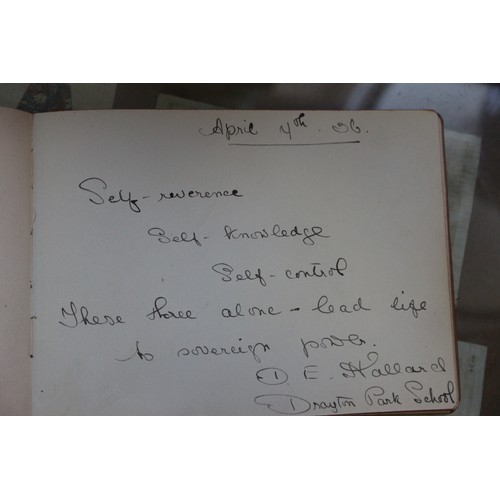 April 4th. 36.
Self-reverence
Self-knowledge
Self-control
These three alone - lead life
to sovereign power.
D. E. Hallard
Drayton Park School